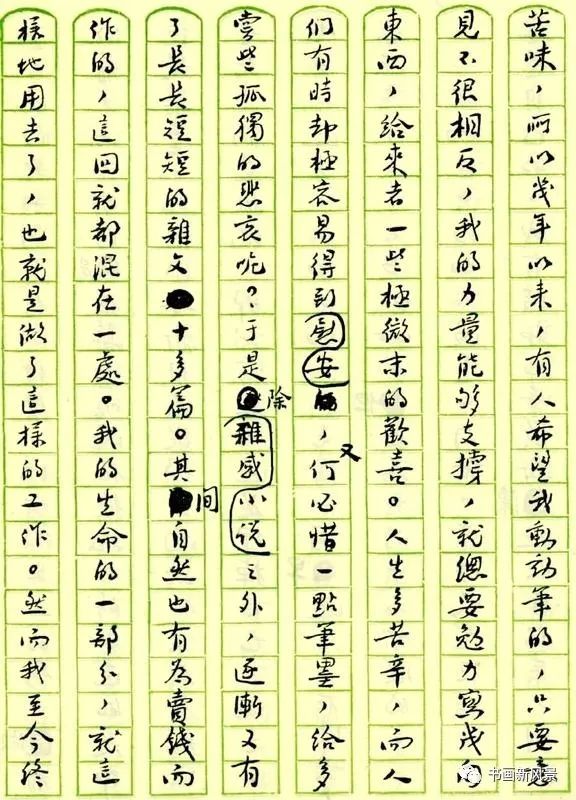 苦味，所以幾年以來，有人希望我動動筆的，只要意
見不很相反，我的力量能够支撐，就總要勉力寫幾句
東西，給來者一些極微末的歡喜。人生多苦辛，而人
们有時却極容易得到慰安，又何必惜一點筆墨，給多
嘗些孤獨的悲哀呢？于是除雜感小说之外，逐漸又有
了長長短短的雜文十多篇。其間自然也有為賣錢而
作的，這回就都混在一處。我的生命的一部分，就這
樣地用去了，也就是做了這樣的工作。然而我至今終
书画新风景